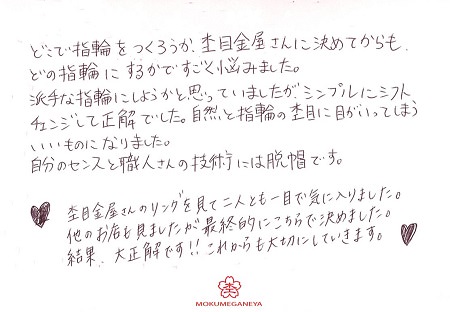 どこで指輪をつくろうか、杢目金屋さんに決めてからも、
どの指輪にするかですごく悩みました。
派手な指輪にしようかと思っていましたがシンプルにシフト
チェンジして正解でした。自然と指輪の杢目に目がいってしまう
いいものになりました。
自分のセンスと職人さんの技術には脱帽です。
杢目金屋さんのリングを見て二人とも一目で気に入りました。
他のお店も見ましたが最終的にこちらで決めました。
結果、大正解です!!これからも大切にしていきます。
杢
MOKUMEGANEYA